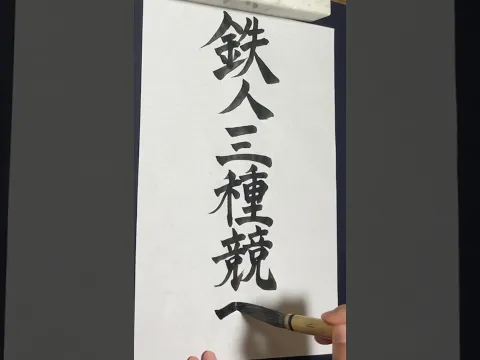 鉄人三種競